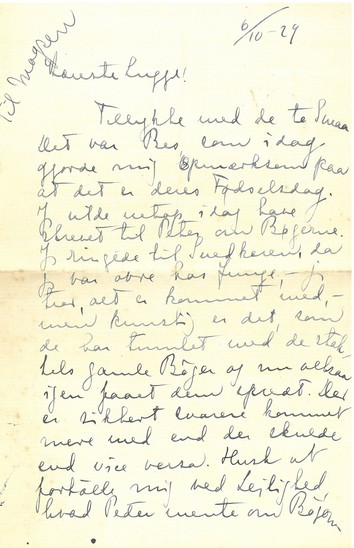 Til Mogens
6/10-29
Kæreste Lugge!
Tillykke med de to Smaa
Det var Bes, som i dag
gjorde mig opmærksom paa
at det er deres Fødselsdag.
Jg vilde netop i dag have
skrevet til Peter om Bøgerne.
Jg ringede til Snedkeren, da
jg var ovre hos Junge, - jg
tror, alt er kommet med, -
men kunstig er det, som
de har tumlet med de stak-
kels gamle Bøger og nu altsaa
igen faaet dem spredt. Der
er sikkert snarere kommet
mere med end der skulde
end vice versa. Husk at
fortælle mig ved Lejlighed,
hvad Peter mente om Bøgerne